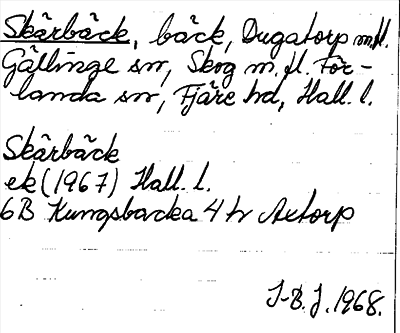 Skårbäck, bäck, Dugatorp m.fl.
Gällinge sn, Skog m.fl. För-
landa sn, Fjäre hd, Hall. l.
Skårbäck
ek (1967) Hall. l.
6B Kungsbacka 4 h Axtorp
J-B. J. 1968.